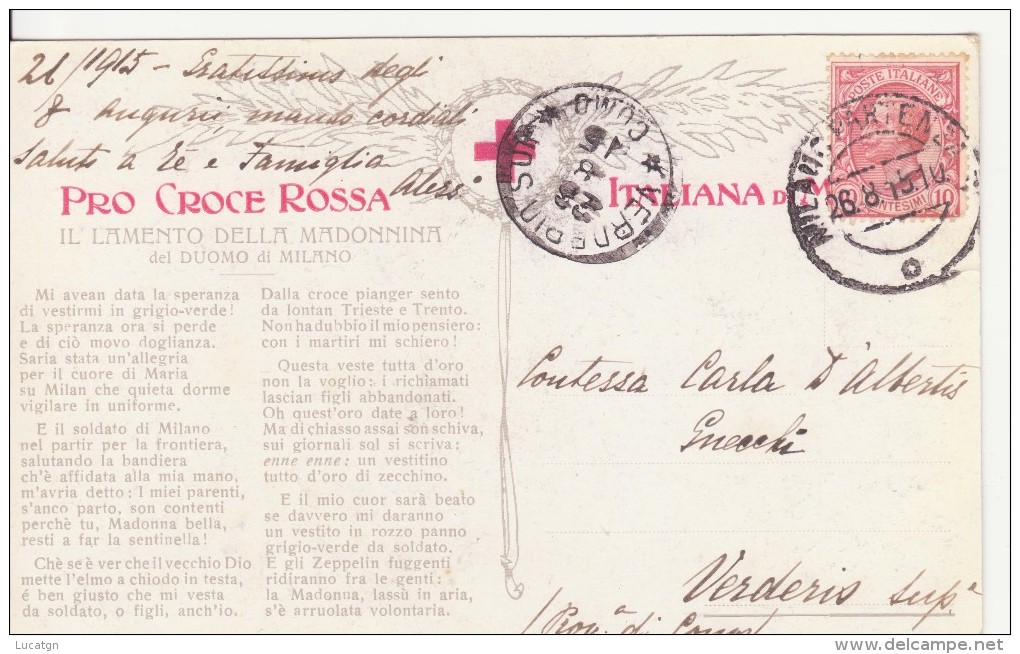 26/1915 - Gratissimo degli
auguri, mando cordiali
saluti a Te e Famiglia
PRO CROCE ROSSA ITALIANA
IL LAMENTO DELLA MADONNINA
del DUOMO di MILANO
Mi avean data la speranza
di vestirmi in grigio-verde!
La speranza ora si perde
e di ciò movo doglianza.
Saria stata un'allegria
per il cuore di Maria
su Milan che quieta dorme
vigilare in uniforme.
E il soldato di Milano
nel partir per la frontiera,
salutando la bandiera
ch'è affidata alla mia mano,
m'avria detto: I miei parenti,
s'anco parto, son contenti
perchè tu, Madonna bella,
resti a far la sentinella!
Chè se è ver che il vecchio Dio
mette l'elmo a chiodo in testa,
é ben giusto che mi vesta
da soldato, o figli, anch'io.
Dalla croce pianger sento
da lontan Trieste e Trento.
Non ha dubbio il mio pensiero:
con i martiri mi schiero!
Questa veste tutta d'oro
non la voglio: i richiamati
lascian figli abbandonati.
Oh quest'oro date a loro!
Ma di chiasso assai son schiva,
sui giornali sol si scriva:
enne enne: un vestitino
tutto d'oro di zecchino.
E il mio cuor sarà beato
se davvero mi daranno
un vestito in rozzo panno
grigio-verde da soldato.
E gli Zeppelin fuggenti
ridiranno fra le genti:
la Madonna, lassù in aria,
s'è arruolata volontaria.
POSTE ITALIANE
CENTESIMI 10
MILANO PARTENZA
26.8.15.10
VERDERIO SUP.
COMO
Contessa Carla D'Albertis
Gnecchi
Verderio Sup.a
(Prov.a di Como)
Lucatgn
delcampe.net